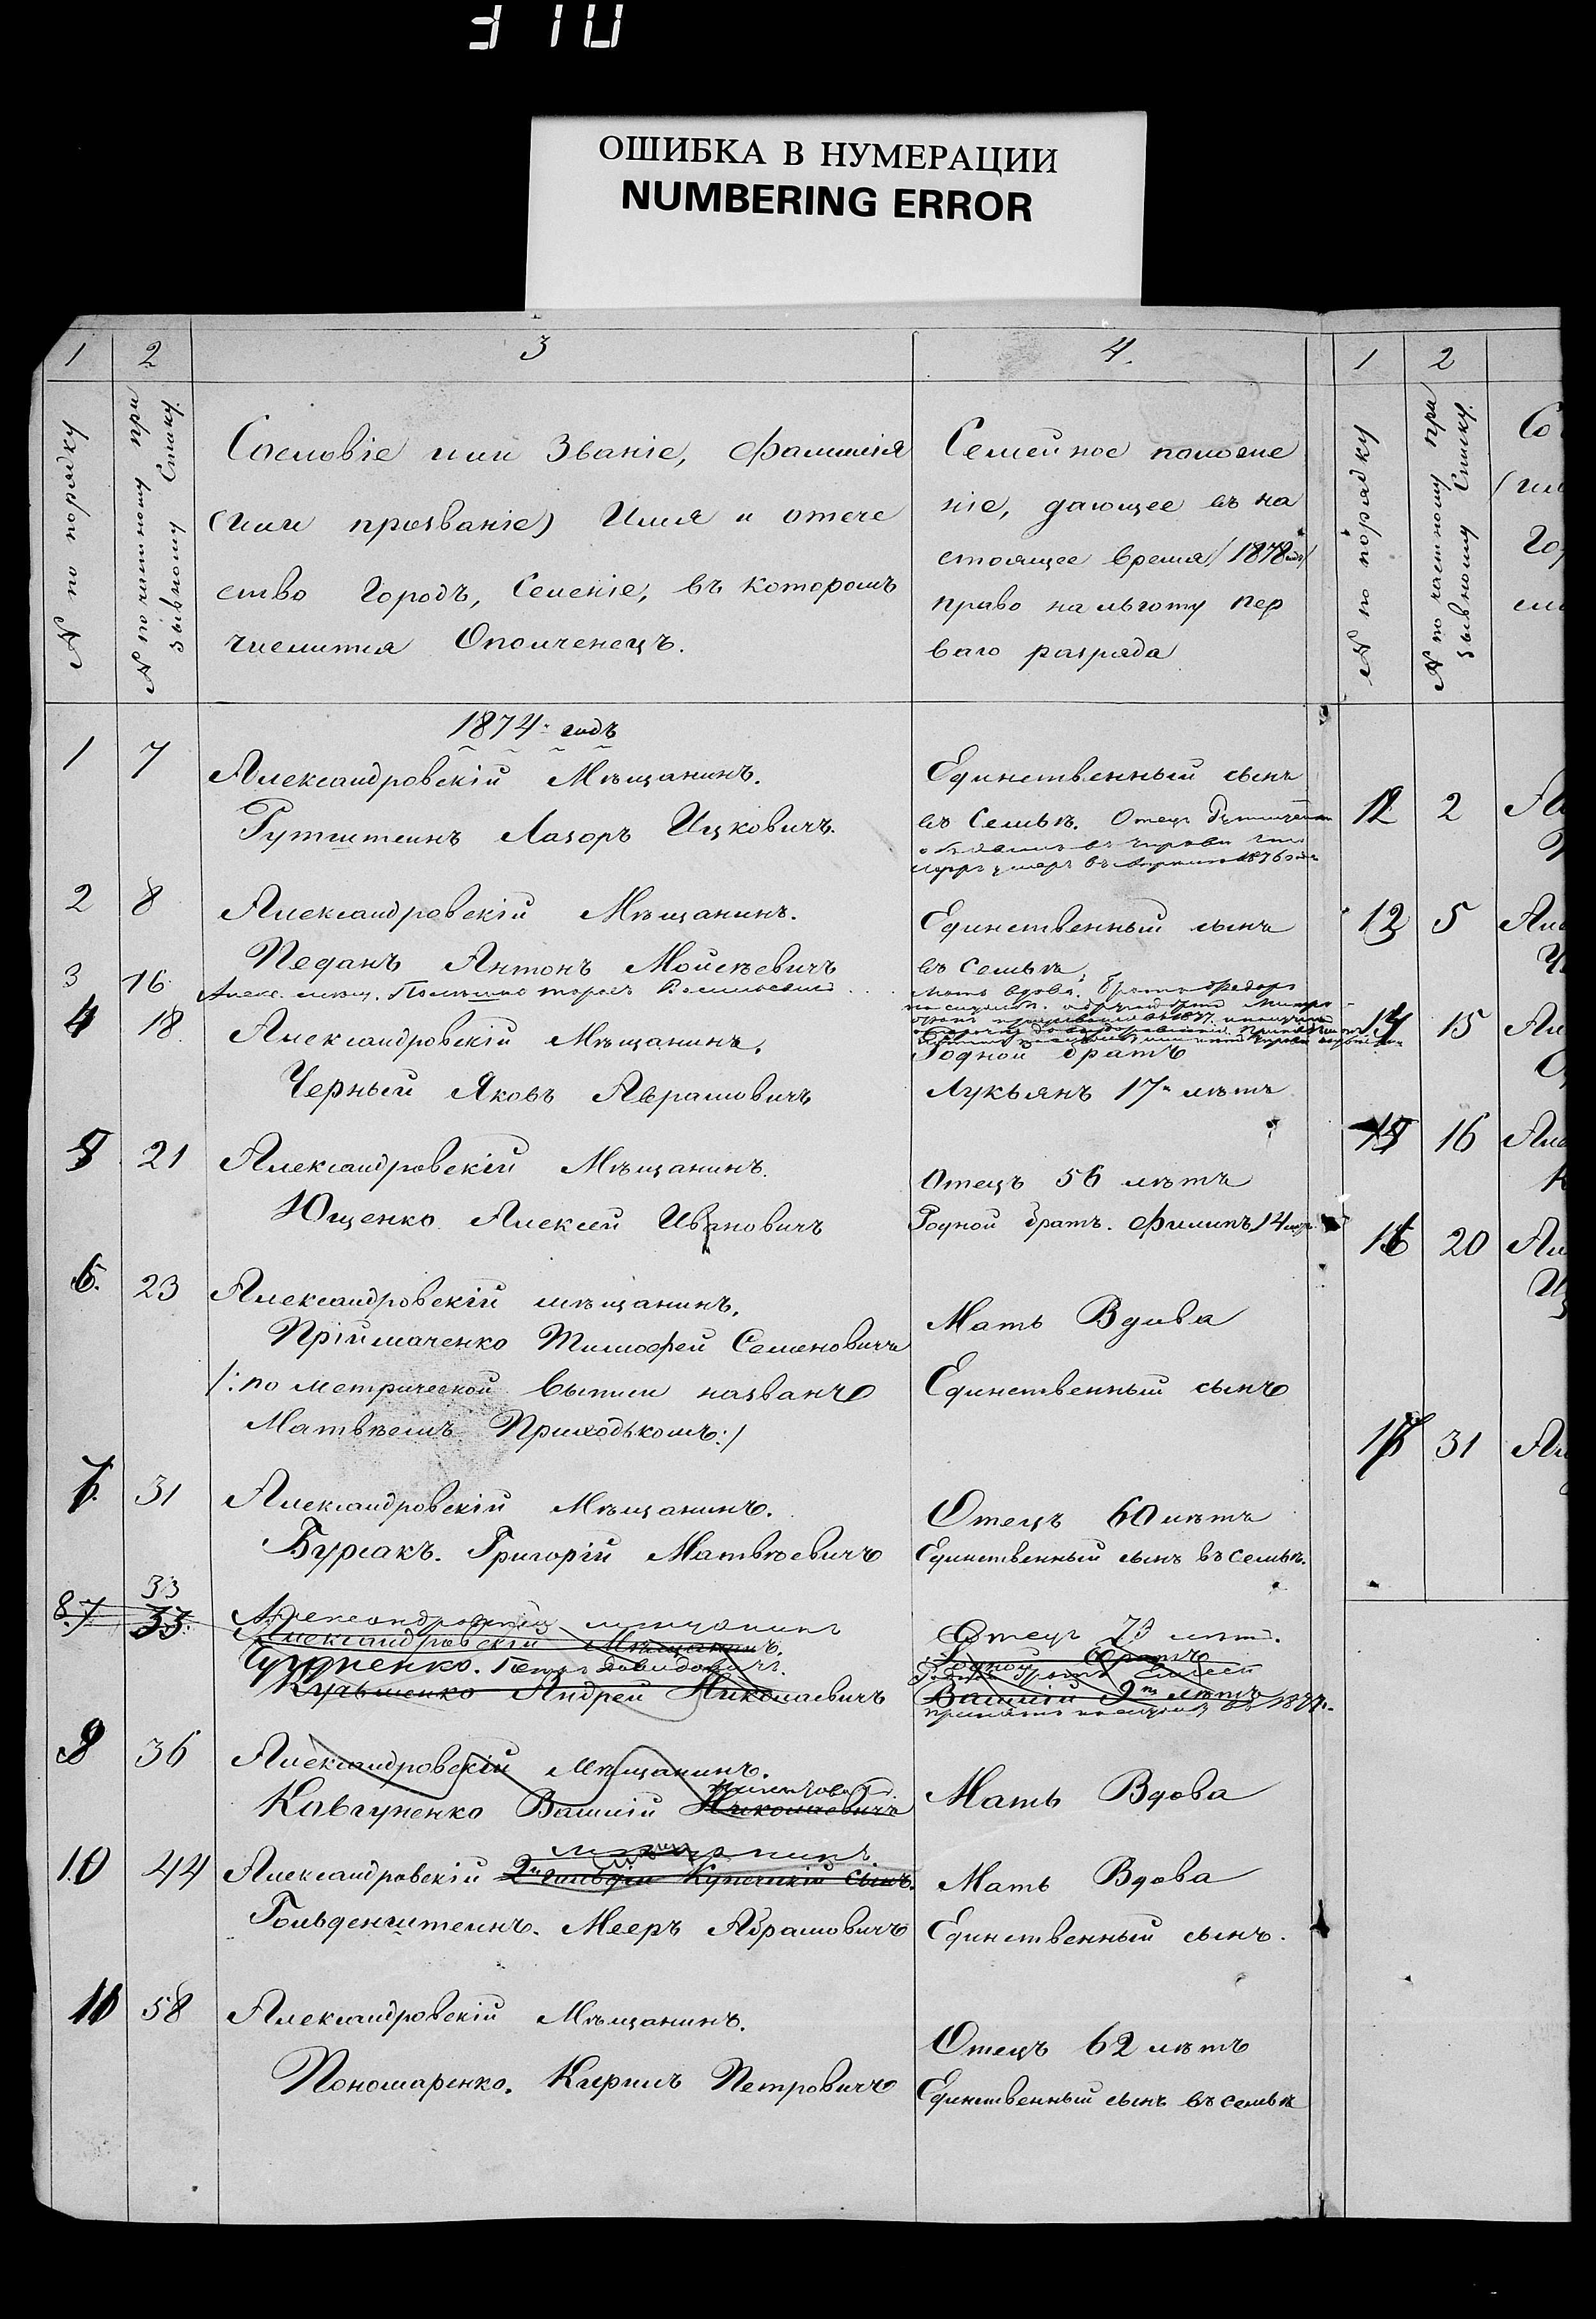 310
ОШИБКА В НУМЕРАЦИИ
NUMBERING ERROR
1 2 3 4.
№ по порядку
№ по частному при
зывному Списку.
Сословіе или Званіе, Фамилія
(или прозваніе) Имя и отече
ство Городъ, Селеніе, въ которомъ
числится Ополченецъ.
Семейное положе
ніе, дающее въ на
стоящее время /1878 года/
право на льготу пер
ваго разряда
1874 годъ
1 7 Александровскій Мѣщанинъ.
Рутштеинъ Лазоръ Ицковичъ.
Единственный сынъ
въ Семьѣ. Отецъ
умеръ въ 1876 года
2 8 Александровскій Мѣщанинъ.
Педанъ Антонъ Мойсѣевичъ
Единственный сынъ
въ Семьѣ
3 16 Алекс. мѣщ. Васильевичъ
Мать вдова. Братъ Федоръ
4 18 Александровскій Мѣщанинъ.
Черный Яковъ Абрамовичъ
Родной братъ
Лукьянъ 17 лѣтъ
5 21 Александровскій Мѣщанинъ.
Ющенко Алексей Ивановичъ
Отецъ 56 лѣтъ
Родной братъ. Филипъ 14 лѣтъ
6. 23 Александровскій мѣщанинъ.
Пріймаченко Тимофей Семеновичъ
/: по метрической выписи названъ
Матвѣемъ Приходькомъ :/
Мать Вдова
Единственный сынъ
7. 31 Александровскій Мѣщанинъ.
Бурсакъ. Григорій Матвѣевичъ
Отецъ 60 лѣтъ
Единственный сынъ въ семьѣ.
8. 7 33 33. Александровскій мѣщанинъ
Александровскій Мѣщанинъ.
Давидовичъ.
Кузьменко Андрей Николаевичъ
Отецъ 73 лѣтъ.
Родной братъ
Родной братъ
Василій 9 лѣтъ
1877.
9 36 Александровскій Мѣщанинъ.
Ковгуненко Василій Николаевичъ
Мать Вдова
мѣщанинъ
10 44 Александровскій 2й гильдіи Купеческій сынъ.
Гольденштеинъ. Мееръ Абрамовичъ
Мать Вдова
Единственный сынъ.
11 58 Александровскій Мѣщанинъ.
Пономаренко. Кирилъ Петровичъ
Отецъ 62 лѣтъ
Единственный сынъ въ семьѣ
1 2
№ по порядку
№ по частному при
зывному Списку.
12 2
13 5
14 15
15 16
16 20
17 31